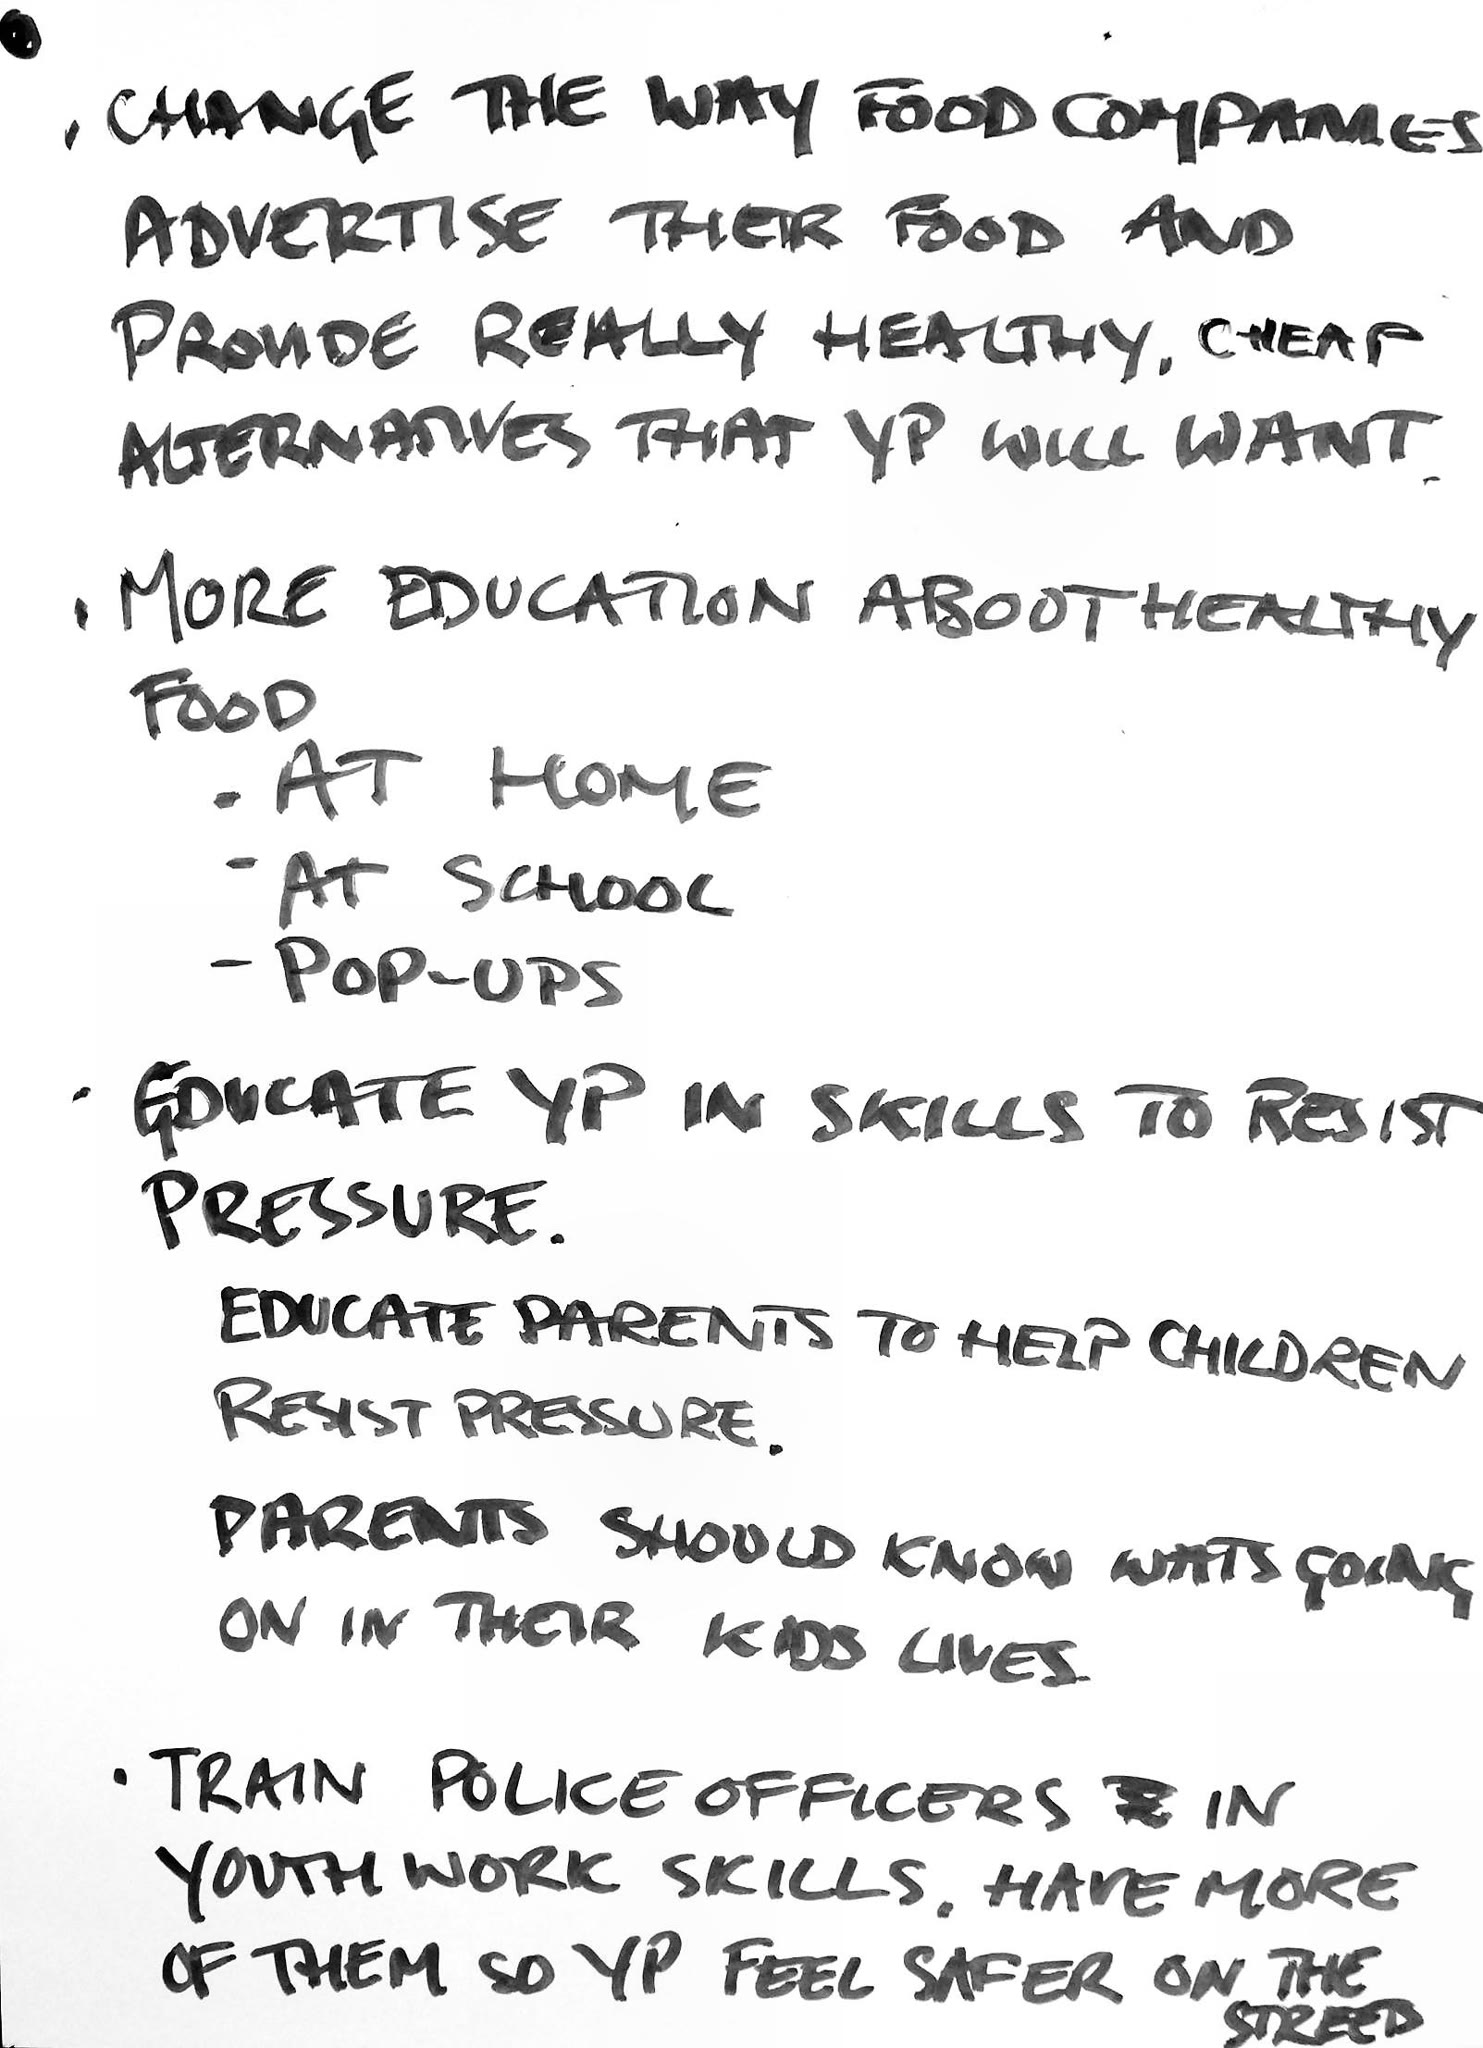 . CHANGE THE WAY FOOD COMPANIES
ADVERTISE THEIR FOOD AND
PROVIDE REALLY HEALTHY, CHEAP
ALTERNATIVES THAT YP WILL WANT.
. MORE EDUCATION ABOUT HEALTHY
FOOD
- AT HOME
- AT SCHOOL
- POP-UPS
. EDUCATE YP IN SKILLS TO RESIST
PRESSURE.
EDUCATE PARENTS TO HELP CHILDREN
RESIST PRESSURE.
PARENTS SHOULD KNOW WHATS GOING
ON IN THEIR KIDS LIVES
. TRAIN POLICE OFFICERS IN
YOUTH WORK SKILLS. HAVE MORE
OF THEM SO YP FEEL SAFER ON THE